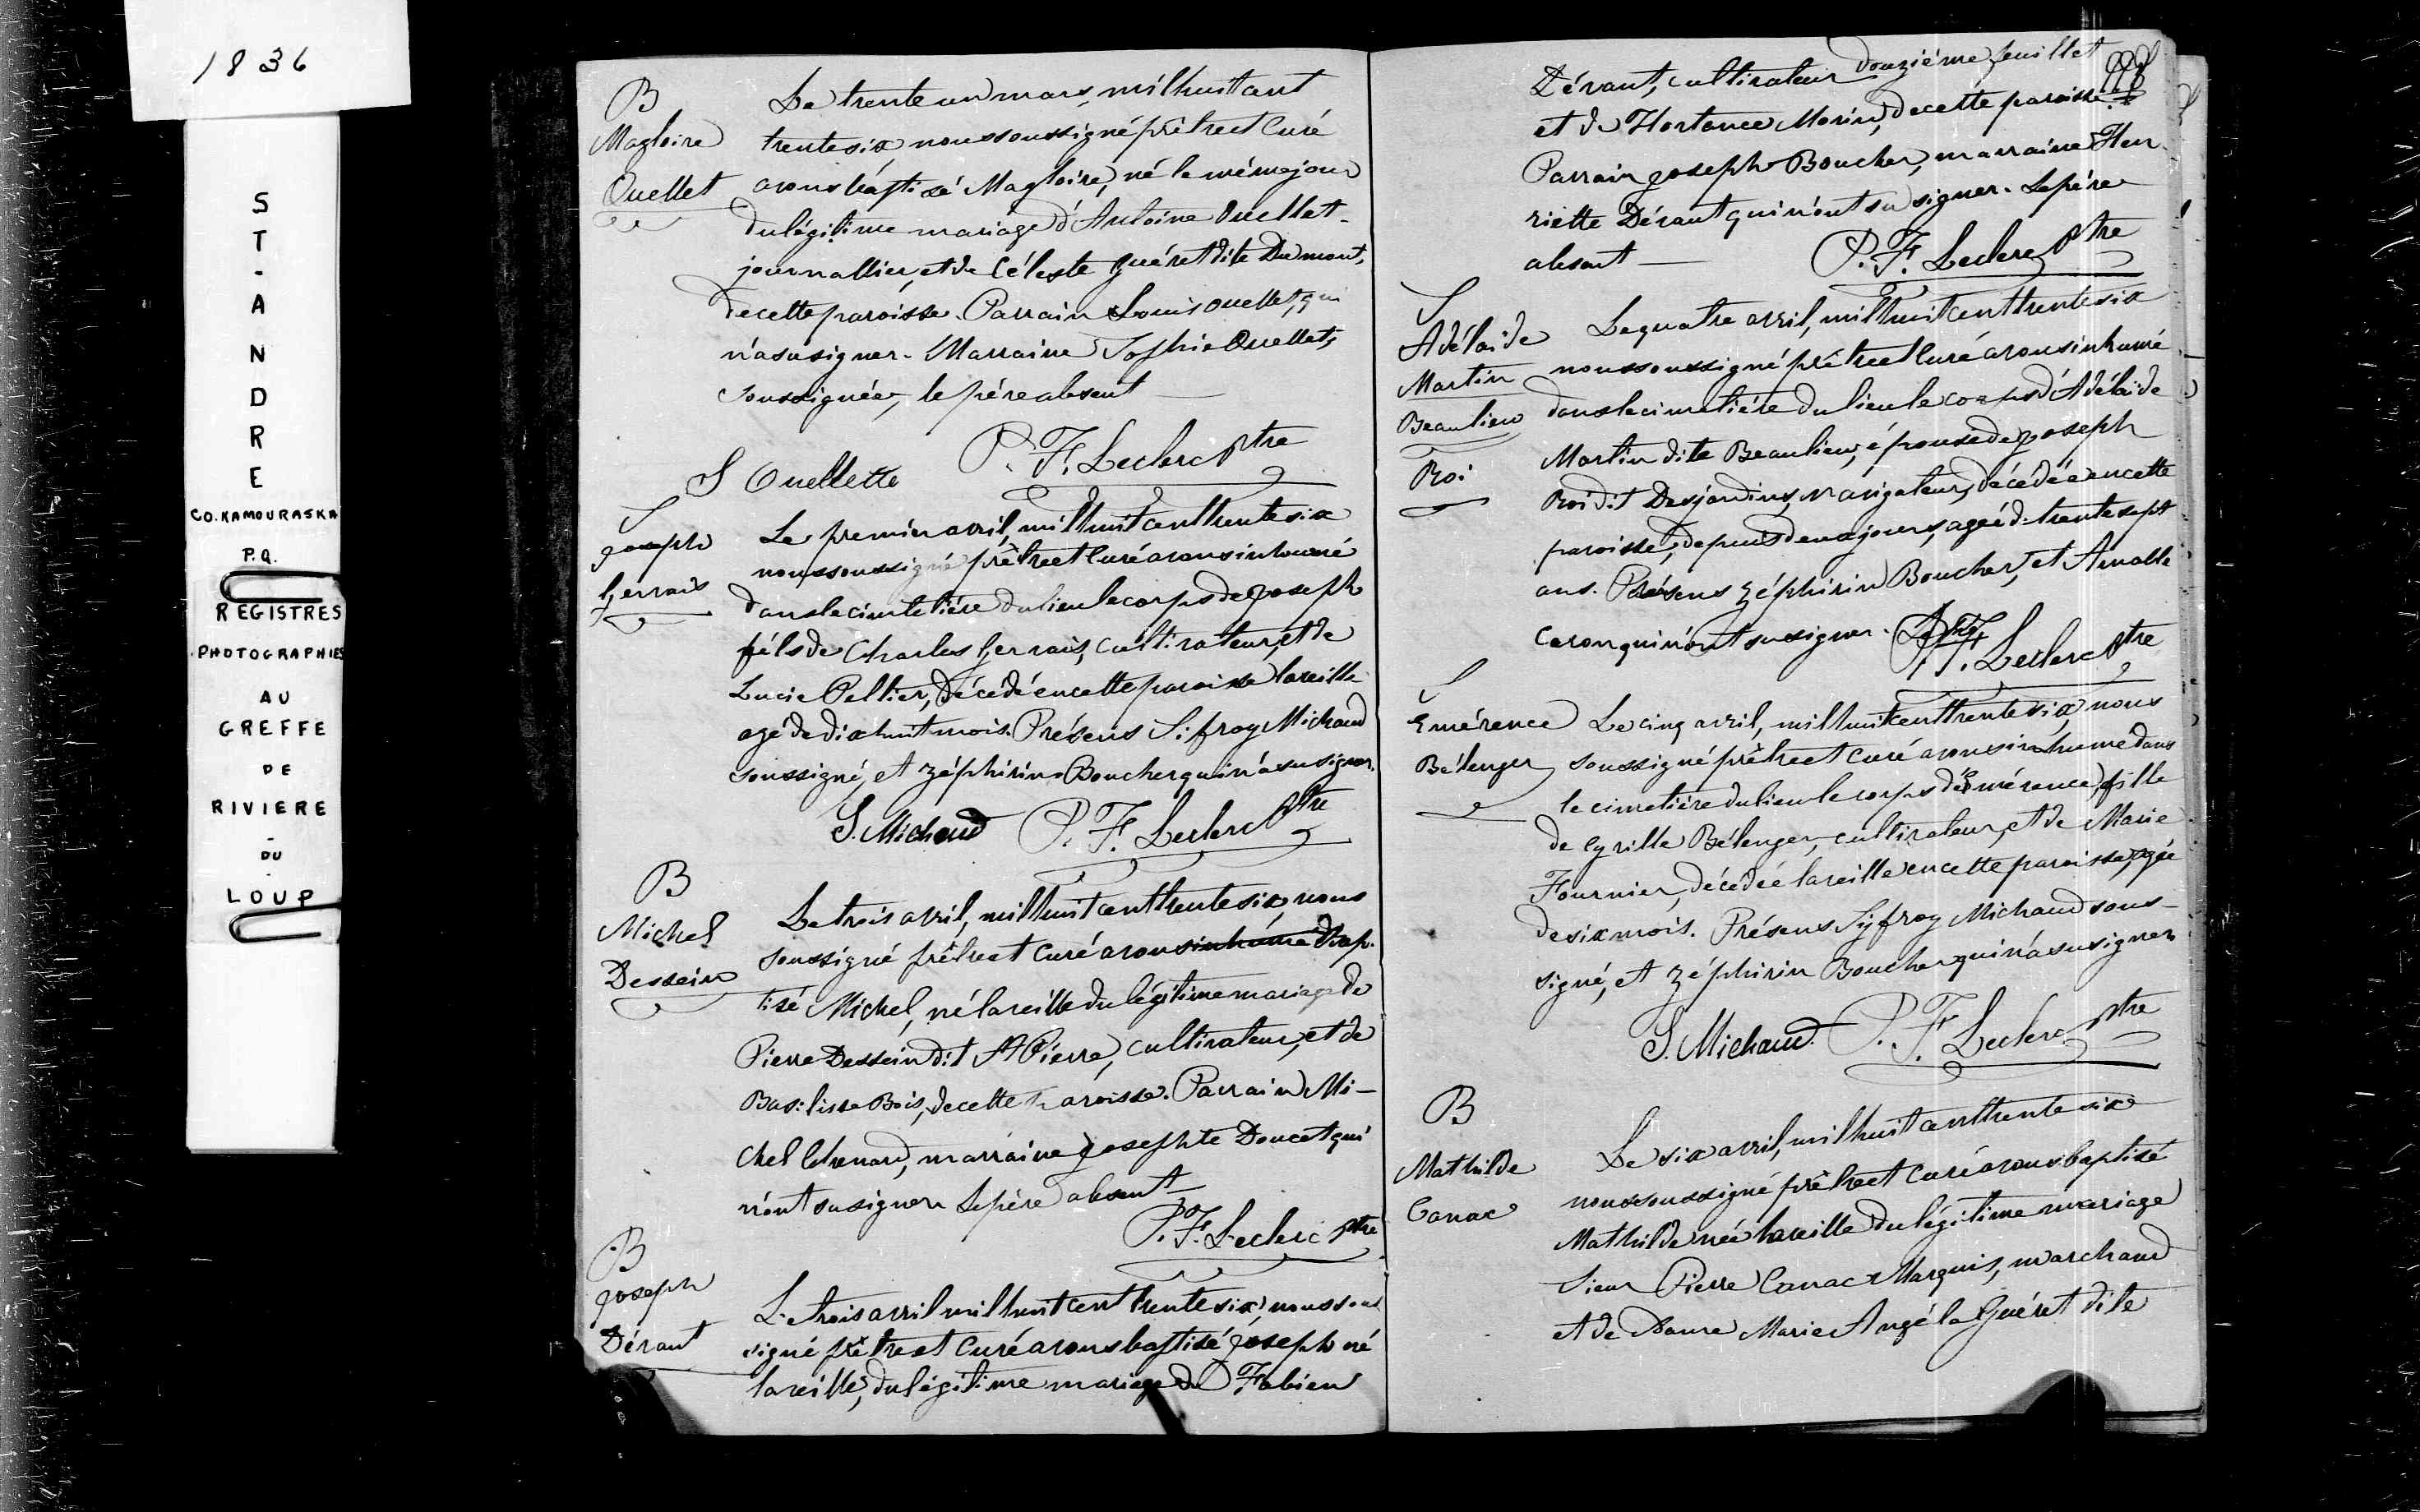 1836
S
T
-
A
N
D
R
E
CO. KAMOURASKA
P.Q.
REGISTRES
PHOTOGRAPHIES
AU
GREFFE
DE
RIVIERE
-
DU
-
LOUP
B
Magloire
Ouellet
Le trente un mars, mil huit cent
trente six nous soussigné prêtre et Curé
avons baptisé Magloire, né le même jour
du légitime mariage d'Antoine Ouellet
journallier, et de Céleste Guéret dite Dumont,
de cette paroisse. Parrain Louis Ouellet, qui
n'a su signer. Marraine Sophie Ouellet,
soussignée, le père absent
S Ouellette P. F. Leclerc Ptre
S
Joseph
Gervais
Le premier avril, mil huit cent trente six
nous soussigné prêtre et Curé avons inhumé
dans le cimetière du lieu le corps de Joseph
fils de Charles Gervais, cultivateur, et de
Lucie Pellier, décédé en cette paroisse la veille
agé de dix huit mois. Présens Sifroy Michaud
soussigné, et Zéphirin Boucher qui n'a su signer.
S. Michaud P. F. Leclerc Ptre
B
Michel
Dessein
Le trois avril, mil huit cent trente six, nous
soussigné prêtre et Curé avons inhumé Bap-
tisé Michel, né la veille du légitime mariage de
Pierre Dessein dit St Pierre, cultivateur, et de
Basilisse Bois, de cette paroisse. Parrain Mi-
chel Chenard, marraine Josephte Doucet qui
n'ont su signer Le père absent
P. F. Leclerc Ptre
B
Joseph
Dévant
Le trois avril mil huit cent trente six nous sous
signé prêtre et Curé avons baptisé Joseph né
la veille, du légitime mariage de Fabien
douzième feuillet
Dévant, cultivateur
et de Hortance Morin, de cette paroisse.
Parrain Joseph Boucher, marraine Hen-
riette Dévant qui n'ont su signer. Le père
absent P. F. Leclerc Ptre
S
Adélaïde
Martin
Beaulieu
Roi
Le quatre avril, mil huit cent trente six
nous soussigné prêtre et Curé avons inhumé
dans le cimetière du lieu le corps d'Adélaïde
Martin dite Beaulieu, épouse de Joseph
Roi dit Desjardins, navigateur, décédée en cette
paroisse, depuis deux jours, agée de trente sept
ans. Présens Zéphirin Boucher, et Amable
Caron qui n'ont su signer. P. F. Leclerc Ptre
S
Emérence
Bélenger
Le cinq avril, mil huit cent trente six, nous
soussigné prêtre et curé avons inhumé dans
le cimetière du lieu le corps d'Emérence, fille
de Cyrille Bélenger, cultivateur, et de Marie
Fournier, décédée la veille en cette paroisse, agée
de six mois. Présens Syfroy Michaud sous-
signé, et Zéphirin Boucher qui n'a su signer
S. Michaud. P. F. Leclerc Ptre
B
Mathilde
Canac
Le six avril, mil huit cent trente six
nous soussigné prêtre et Curé avons baptisé
Mathilde née la veille du légitime mariage
Sieur Pierre Canac Marquis, marchand
et de Dame Marie Angéle Guéret dite